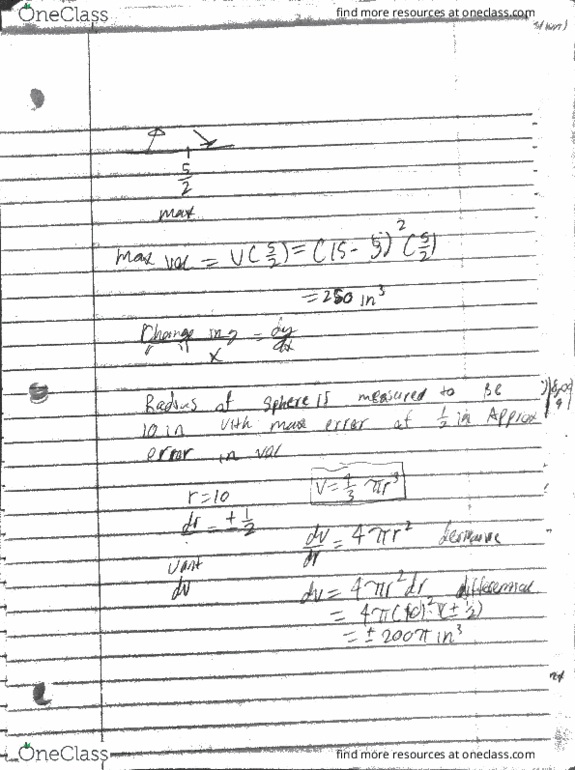 OneClass
find more resources at oneclass.com
5/2
max
max val = V(5/2) = (15 - 5)² (5/2)
= 250 in³
Change in y = dy
x dx
Radius of sphere is measured to be
10 in with max error of 1/2 in Approx
error in vol
r = 10
V = 4/3 πr³
dr = ± 1/2
dv/dr = 4πr² derivative
want
dv
dv = 4πr² dr differential
= 4π(10)² (± 1/2)
= ± 200π in³
OneClass
find more resources at oneclass.com